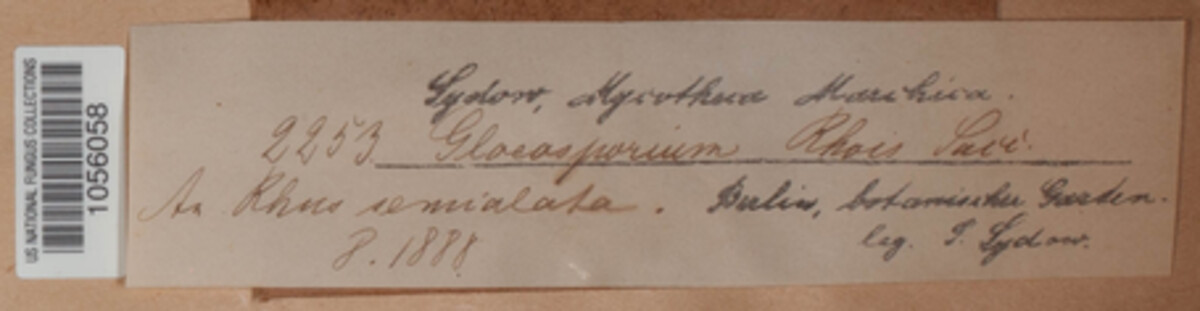 US NATIONAL FUNGUS COLLECTIONS
1056058
Sydow, Mycotheca Marchica.
2253 Gloeosporium Rhois
An Rhus semialata. Berlin, botanischer Garten.
8. 1888 leg. P. Sydow.